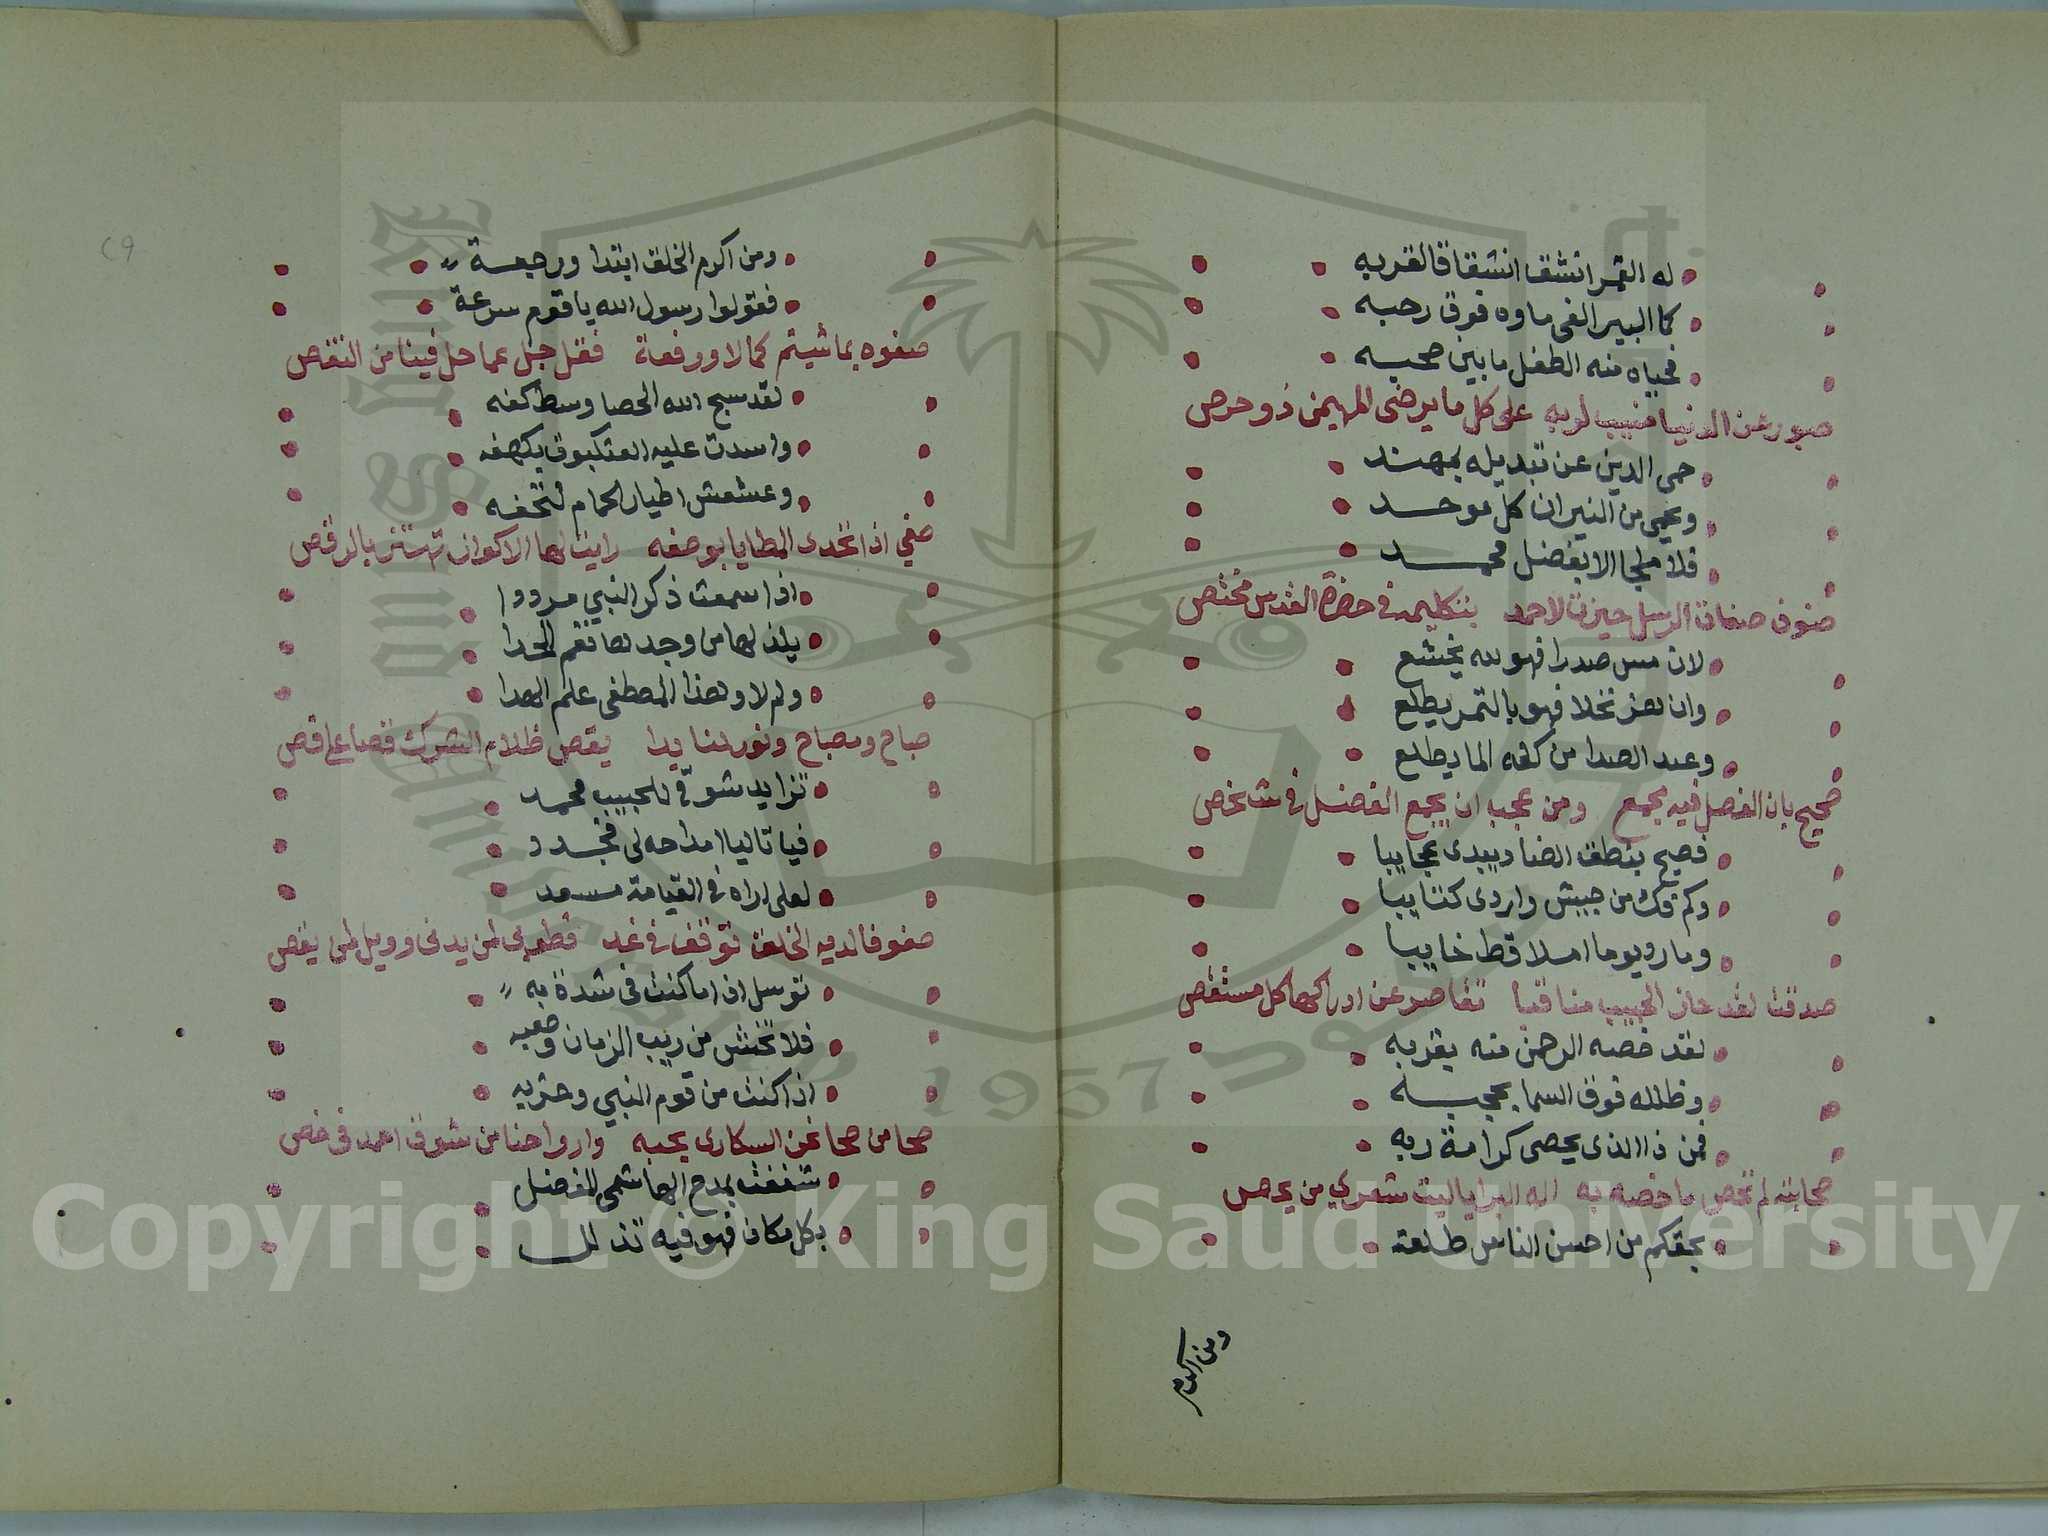 له القمر انشق انشقاقا لقربه
كما البير الفى ماوه فوق رحبه
فحياه منه الطفل ما بين صحبه
صبور عن الدنيا منيب لربه على كل ما يرضى المهيمن ذو حرص
حمى الدين عن تبديله بمهند
ويحمى من النيران كل موحد
فلا ملجا الا بفضل محمد
صنوف صفات الرسل حيزت لاحمد بتكليمه في حضرة القدس مختص
لان مس صدرا فهو لله يخشع
وان نخلا فهو بالتمر يطلع
وعند الصدا من كفه الما يطلع
صحيح بان الفضل فيه مجمع ومن عجب ان يجمع الفضل في شخص
فصيح بنطق الضاد يبدى عجايبا
وكم فك من جيش واردى كتايبا
وما رد يوما املا قط خايبا
صدقت لقد حاز الحبيب مناقبا تقاصر عن ادراكها كل مستقص
لقد خصه الرحمن منه بقربه
وظلله فوق السما بحجبه
فمن ذا الذى يحصى كرامة ربه
صحابته لم تحص ما خصه به اله البرايا ليت شعري من يحص
بحقكم من احسن الناس طلعة
ومن اكرم
ومن اكرم الخلق ابتدا ورجعة
فقولوا رسول الله يا قوم سرعة
صفوه بما شيتم كمالا ورفعة فقل جل عما حل فينا من النقص
لقد سبح الله الحصا وسط كفه
واسدت عليه العنكبوت بكهفه
وعشعش اطيار الحمام لتخفه
صفي اذا تحدى المطايا بوصفه رايت لها الاكوار تهتز بالرقص
اذا سمعت ذكر النبي مرددا
يلذ لها من وجدها نغم الحدا
ولم لا وهذا المصطفى علم الهدا
صباح ومصباح ونور لنا بدا يقص ظلام الشرك قصا على قص
تزايد شوقي للحبيب محمد
فيا تاليا امداحه لى فجدد
لعلى اراه في القيامة مسعد
صفوفا لديه الخلق توقف في غد فطوبى لمن يدنى وويل لمن يقص
توسل اذا ما كنت فى شدة به
فلا تخش من ريب الزمان وصعبه
اذا كنت من قوم النبي وحزبه
صحا من صحا نحن السكارى بحبه وارواحنا من شوق احمد فى خص
شغفت بمدح الهاشمى المفضل
بكل مكان فهو فيه تذللـ
Copyright © King Saud University
1957